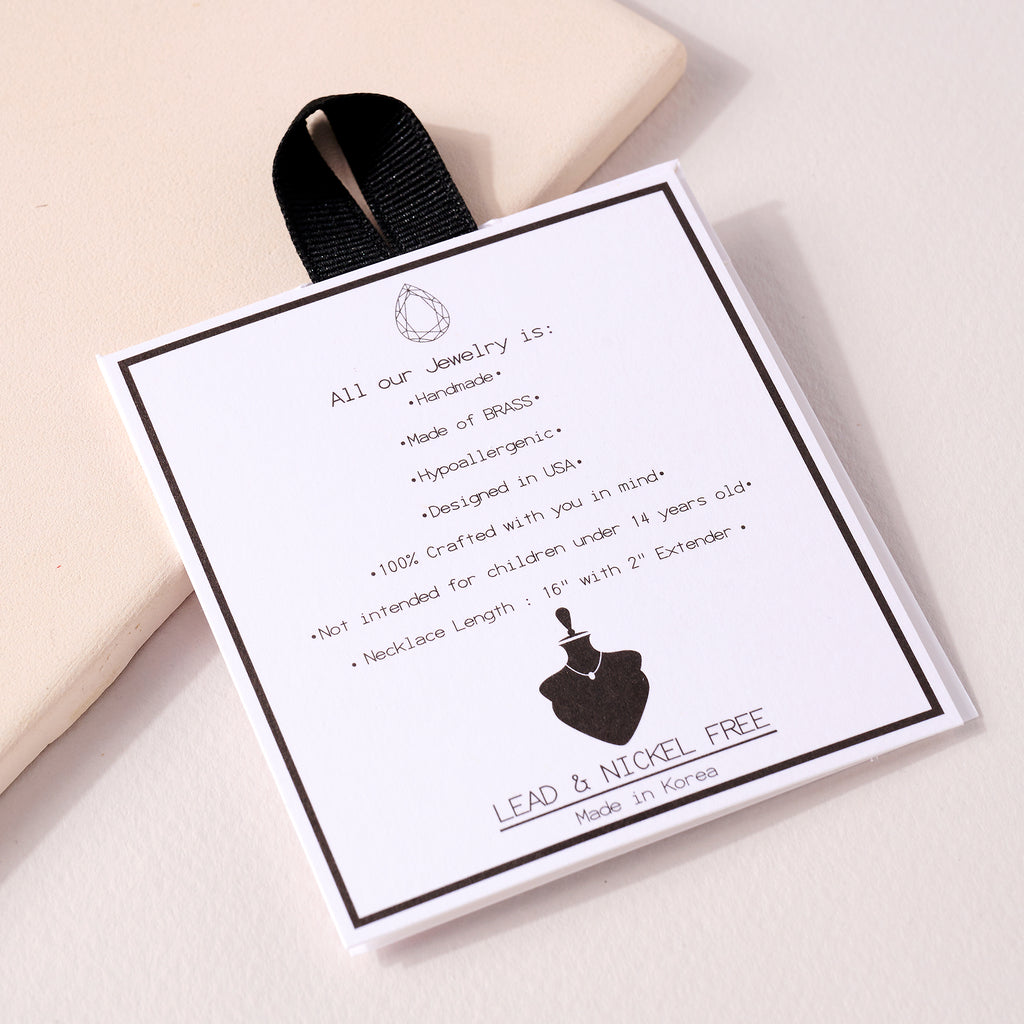 All our Jewelry is:
•Handmade•
•Made of BRASS•
•Hypoallergenic•
•Designed in USA•
•100% Crafted with you in mind•
•Not intended for children under 14 years old•
• Necklace Length : 16" with 2" Extender •
LEAD & NICKEL FREE
Made in Korea